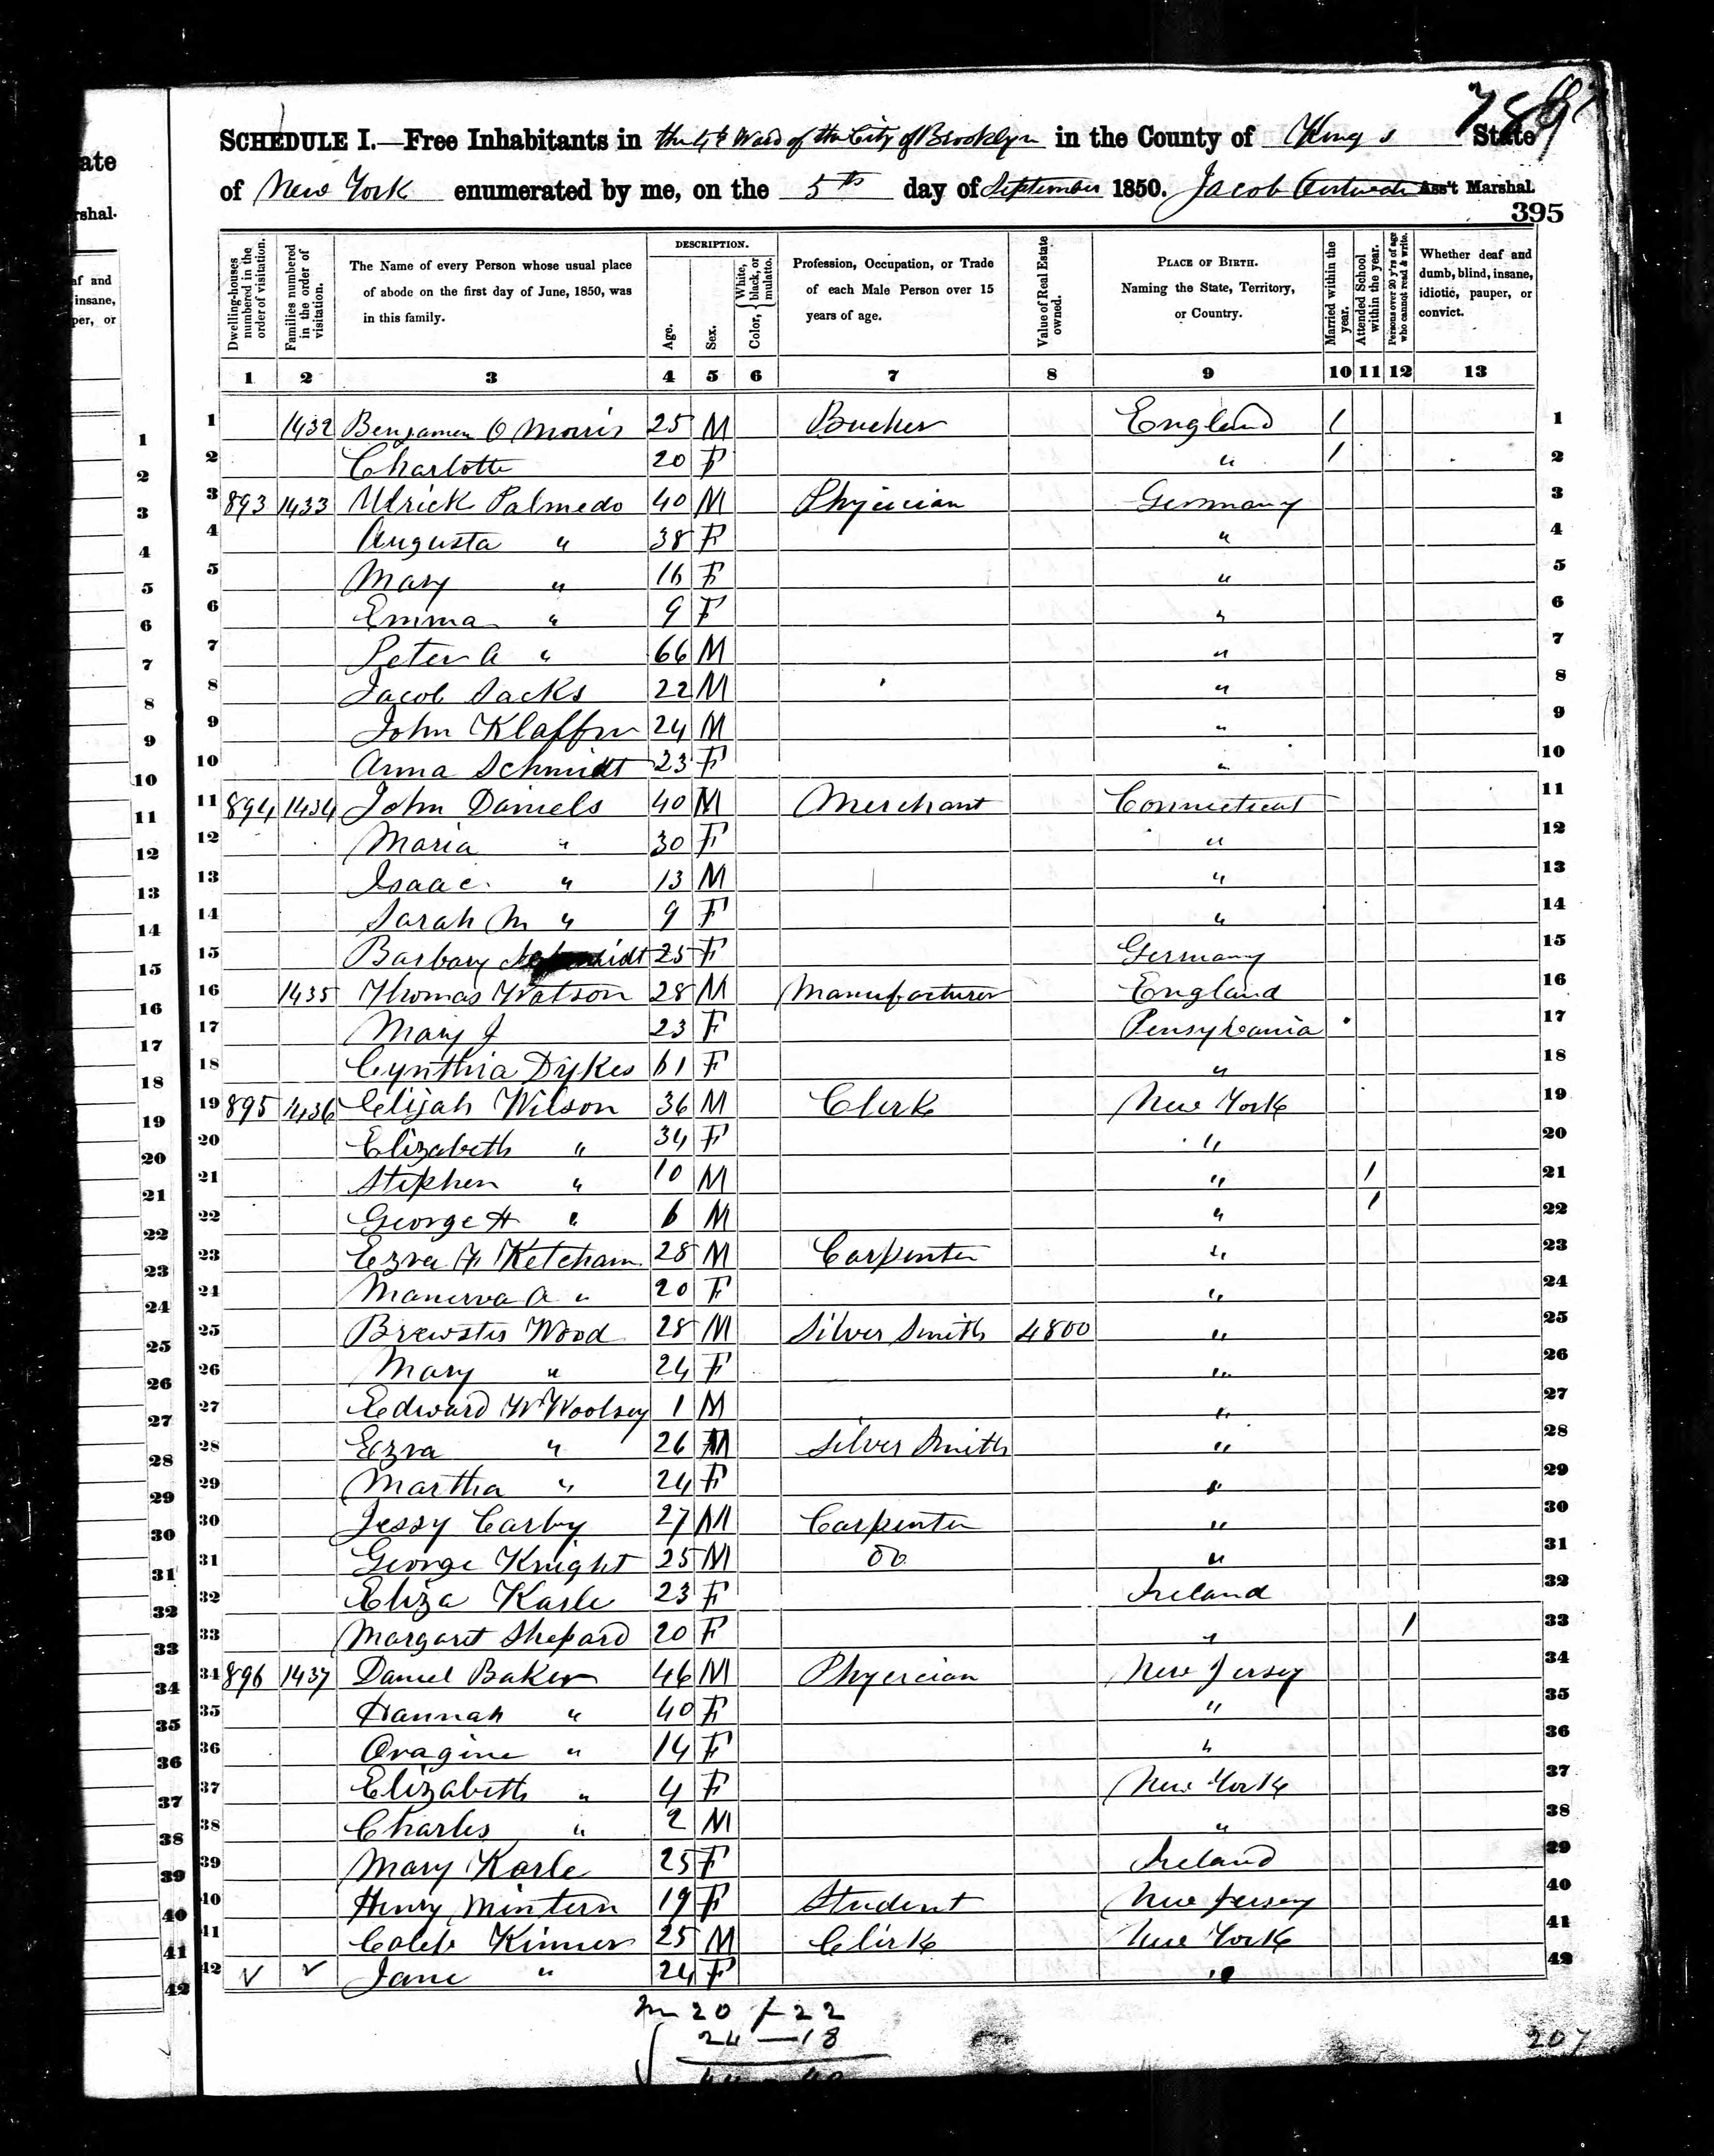 789
SCHEDULE I.—Free Inhabitants in the 4th Ward of the City of Brooklyn in the County of Kings State
of New York enumerated by me, on the 5th day of September 1850. Jacob Ass't Marshal.
395
Dwelling-houses numbered in the order of visitation.
Families numbered in the order of visitation.
The Name of every Person whose usual place of abode on the first day of June, 1850, was in this family.
DESCRIPTION.
Age.
Sex.
Color, { White, black, or mulatto.
Profession, Occupation, or Trade of each Male Person over 15 years of age.
Value of Real Estate owned.
PLACE OF BIRTH. Naming the State, Territory, or Country.
Married within the year.
Attended School within the year.
Persons over 20 y'rs of age who cannot read & write.
Whether deaf and dumb, blind, insane, idiotic, pauper, or convict.
1 2 3 4 5 6 7 8 9 10 11 12 13
1 1432 Benjamen O Morris 25 M Bucher England 1 1
2 Charlotte 20 F " 1 2
3 893 1433 Ulrick Palmedo 40 M Physician Germany 3
4 Augusta " 38 F " 4
5 Mary " 16 F " 5
6 Emma " 9 F " 6
7 Peter A " 66 M " 7
8 Jacob Sacks 22 M " 8
9 John Klaffn 24 M " 9
10 Anna Schmidt 23 F " 10
11 894 1434 John Daniels 40 M Merchant Connecticut 11
12 Maria " 30 F " 12
13 Isaac " 13 M " 13
14 Sarah M " 9 F " 14
15 Barbary 25 F Germany 15
16 1435 Thomas Watson 28 M Manufacturer England 16
17 Mary J 23 F Pensylvania 17
18 Cynthia Dykes 61 F " 18
19 895 1436 Elijah Wilson 36 M Clerk New York 19
20 Elizabeth " 34 F " 20
21 Stephen " 10 M " 1 21
22 George H " 6 M " 1 22
23 Ezra F Ketcham 28 M Carpenter " 23
24 Manerva A " 20 F " 24
25 Brewster Wood 28 M Silver Smith 4800 " 25
26 Mary " 24 F " 26
27 Edward W Woolsey 1 M " 27
28 Ezra " 26 M Silver Smith " 28
29 Martha " 24 F " 29
30 Jessy Carby 27 M Carpenter " 30
31 George Knight 25 M Do " 31
32 Eliza Karle 23 F Ireland 32
33 Margaret Shepard 20 F " 1 33
34 896 1437 Daniel Baker 46 M Physician New Jersey 34
35 Hannah " 40 F " 35
36 Oragine " 14 F " 36
37 Elizabeth " 4 F New York 37
38 Charles " 2 M " 38
39 Mary Karle 25 F Ireland 29
40 Henry Mintern 19 F Student New Jersey 40
41 Caleb Kinner 25 M Clerk New York 41
42 Jane " 24 F " 42
m 20 f 22
24 — 18
207